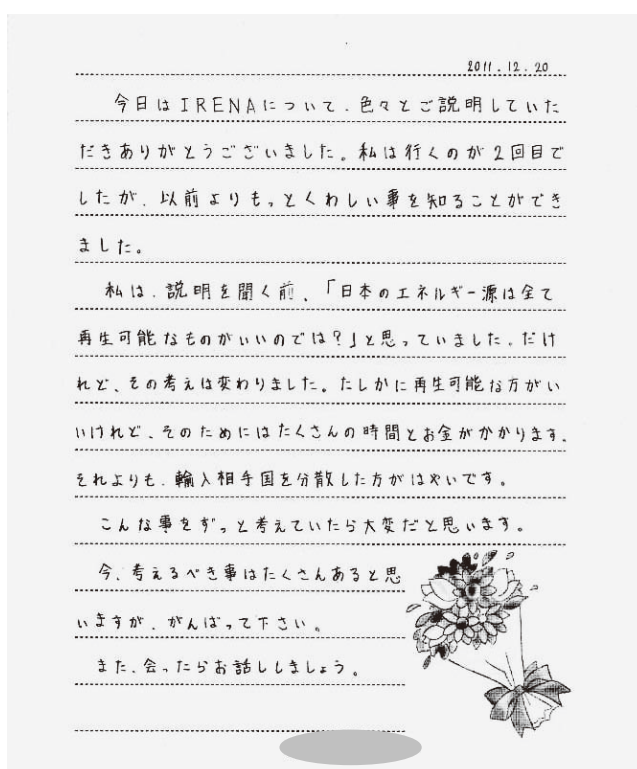 2011.12.20
今日はIRENAについて、色々とご説明していた
だきありがとうございました。私は行くのが2回目で
したが、以前よりもっとくわしい事を知ることができ
ました。
私は、説明を聞く前、「日本のエネルギー源は全て
再生可能なものがいいのでは?」と思っていました。だけ
れど、その考えは変わりました。たしかに再生可能な方がい
いけれど、そのためにはたくさんの時間とお金がかかります。
それよりも、輸入相手国を分散した方がはやいです。
こんな事をずっと考えていたら大変だと思います。
今、考えるべき事はたくさんあると思
いますが、がんばって下さい。
また、会ったらお話ししましょう。